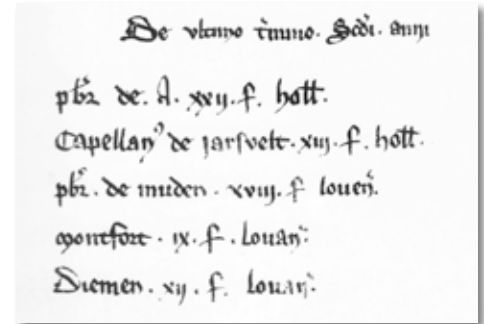 De vltimo t'mino. Scdi. anni
pbr de. A. xxij. f. holl.
Capellan9 de jarsvelt. xiij. f. holl.
pbr. de muden. xviij. f louen.
montfort. ix. f. Louan:
Diemen. xij. f. louan: